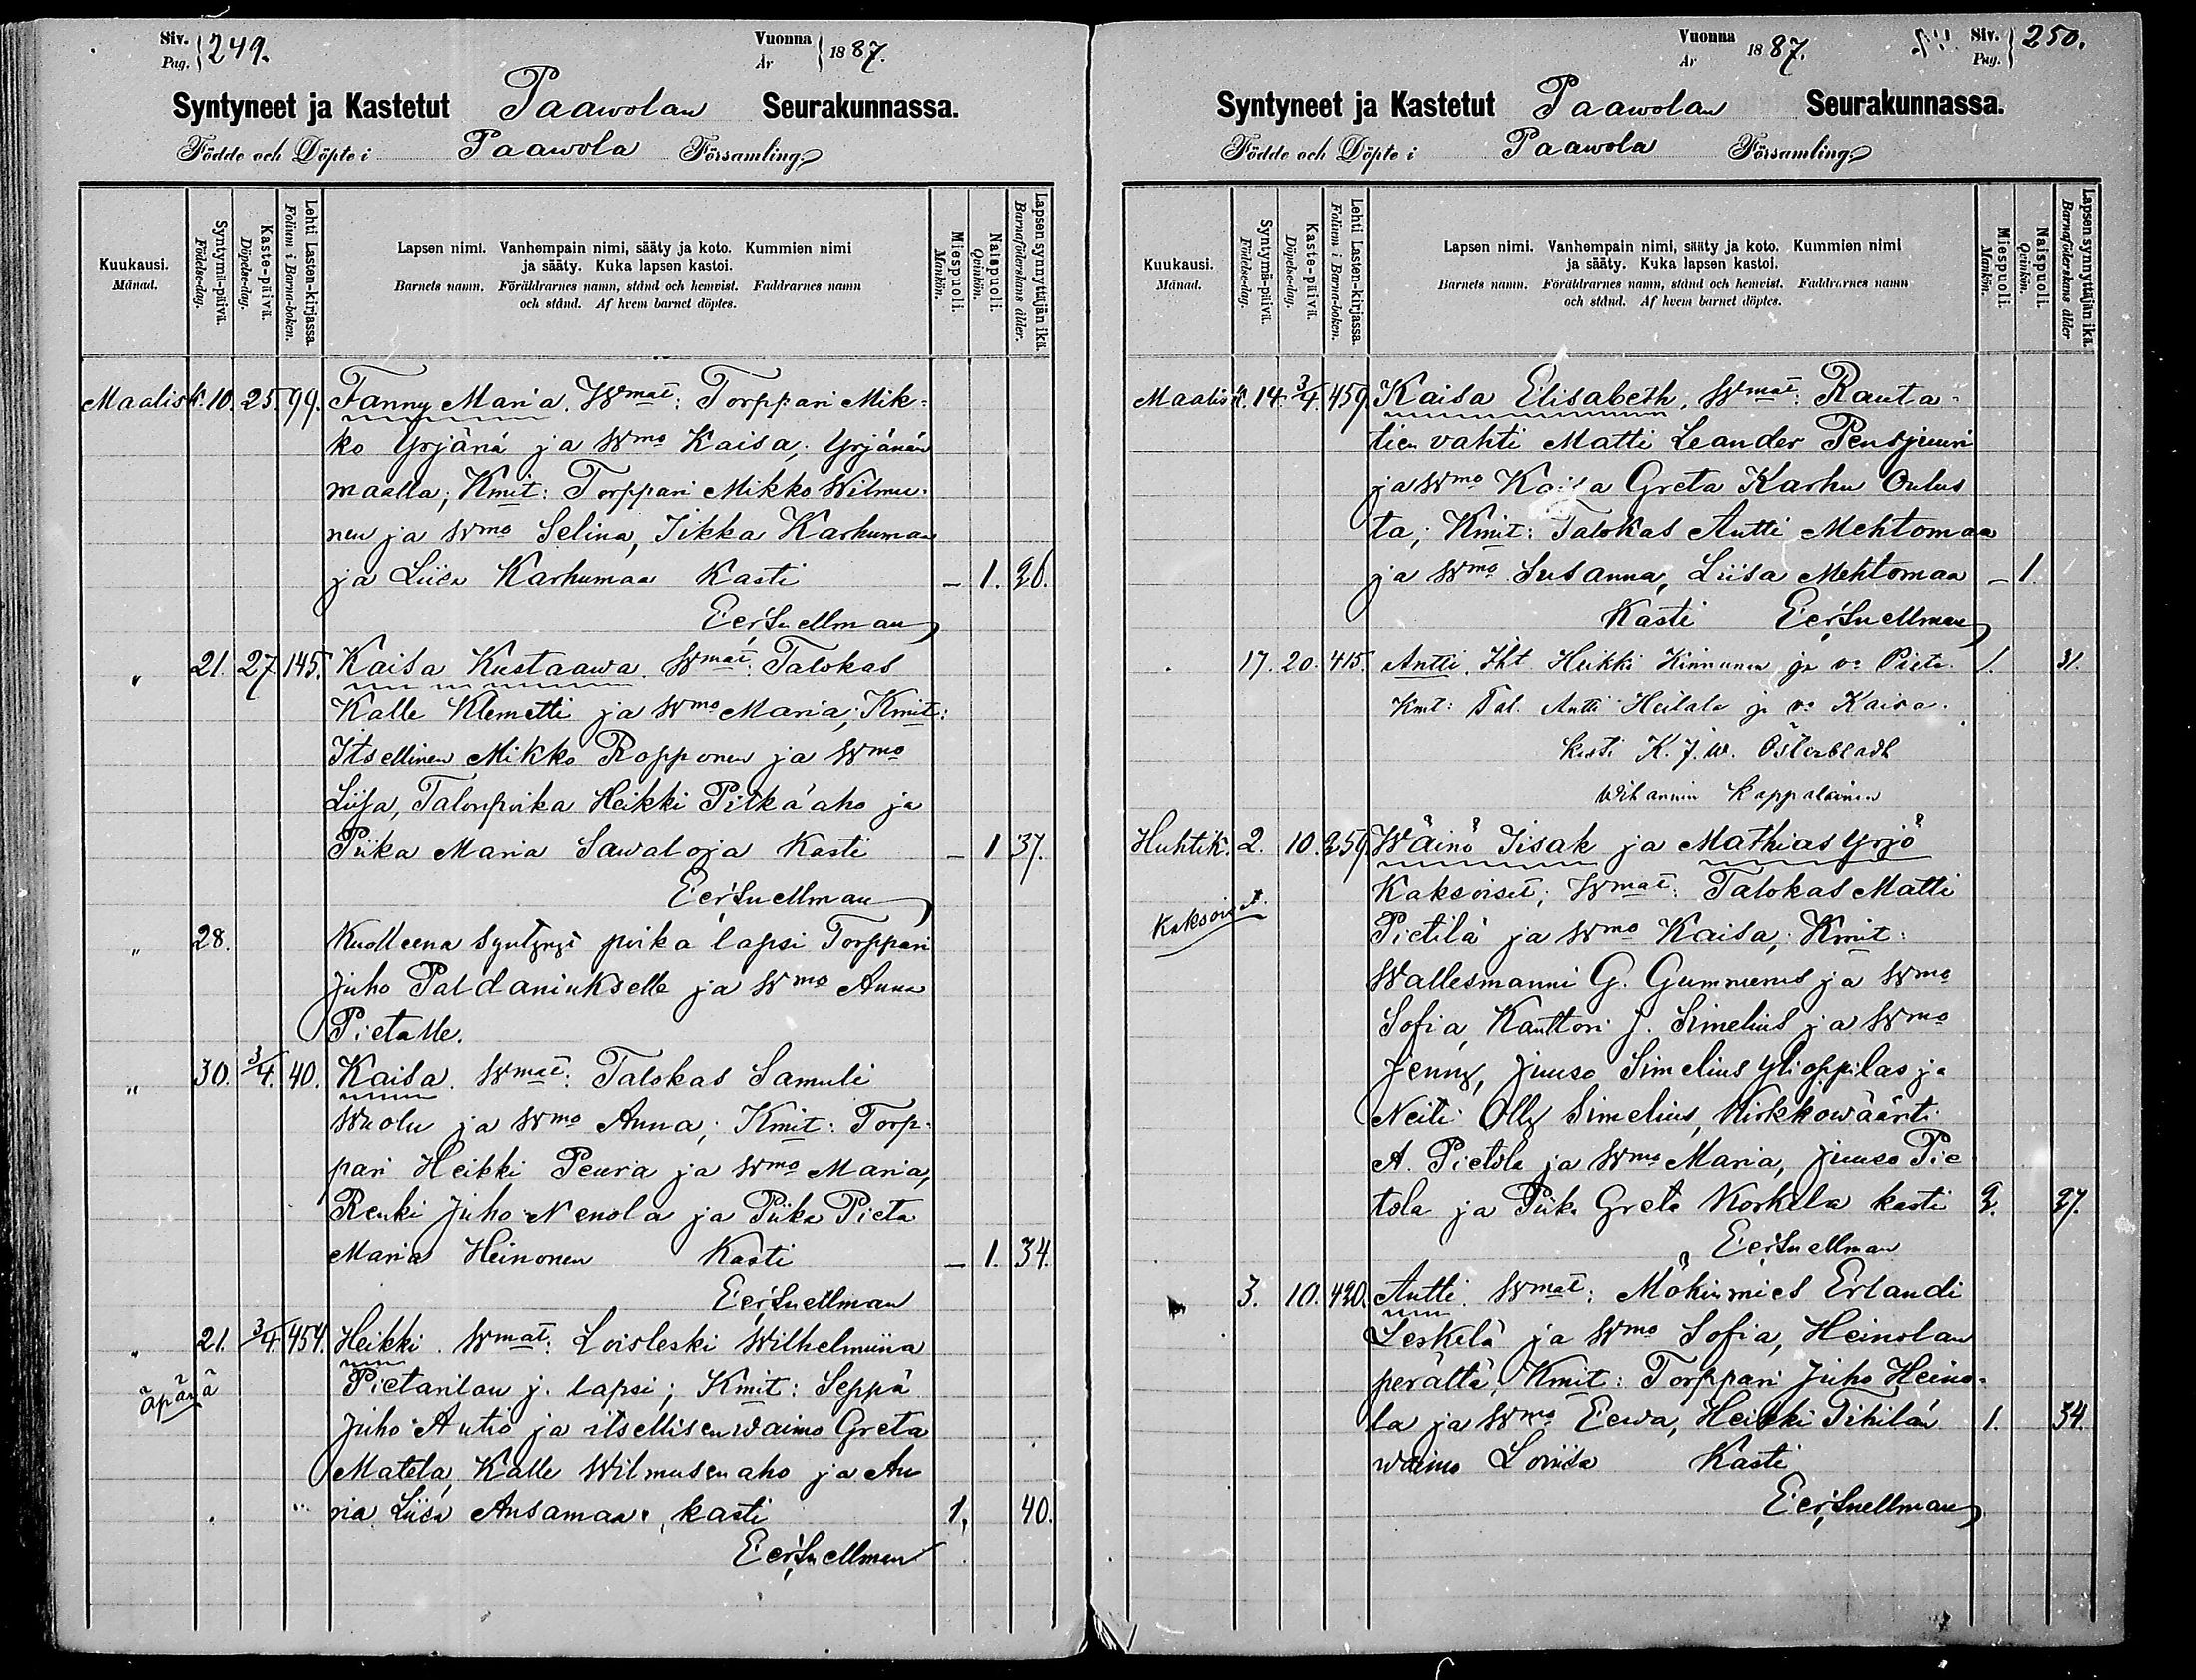 Siv. 249. Vuonna 1887.
Pag. År
Syntyneet ja Kastetut Paawolan Seurakunnassa.
Födde och Döpte i Paawola Församling
Kuukausi. Månad.
Syntymä-päivä. Födelse-dag.
Kaste-päivä. Döpelse-dag.
Lehti Lasten-kirjassa. Folium i Barna-boken.
Lapsen nimi. Vanhempain nimi, sääty ja koto. Kummien nimi
ja sääty. Kuka lapsen kastoi.
Barnets namn. Föräldrarnes namn, stånd och hemvist. Faddrarnes namn
och stånd. Af hvem barnet döptes.
Miespuoli. Mankön.
Naispuoli. Qvinkön.
Lapsen synnyttäjän ikä. Barnaföderskans ålder.
Maalisk. 10. 25. 99. Fanny Maria. Wmat: Torppari Mik-
ko Yrjänä ja Wmo Kaisa, Yrjänän
maalla; Kmit: Torppari Mikko Wilmu-
nen ja Wmo Selina, Iikka Karhumaa
ja Liisa Karhumaa Kasti — 1. 26.
Eer. Snellman
„ 21. 27. 145. Kaisa Kustaawa. Wmat: Talokas
Kalle Klemetti ja Wmo Maria; Kmit:
Itsellinen Mikko Ropponen ja Wmo
Liisa, Talonpoika Heikki Pitkäaho ja
Piika Maria Sawaloja Kasti — 1 37.
Eer. Snellman
„ 28. Kuolleena syntynyt poika lapsi Torppari
Juho Paldaniukselle ja Wmo Anna
Pietalle.
„ 30. 3/4. 40. Kaisa. Wmat: Talokas Samuli
Wuolu ja Wmo Anna; Kmit: Torp-
pari Heikki Peura ja Wmo Maria,
Renki Juho Nenola ja Piika Pieta
Maria Heinonen Kasti — 1. 34.
Eer. Snellman
„ 21. 3/4. 454. Heikki. Wmat: Loisleski Wilhelmiina
äpärä Pietarilan j. lapsi; Kmit: Seppä
Juho Autio ja itsellisen waimo Greta
Matela, Kalle Wilmusenaho ja An
na Liisa Ansamaa, kasti 1, 40.
Eer. Snellman
Vuonna 1887. Siv. 250.
År Pag.
Syntyneet ja Kastetut Paawolan Seurakunnassa.
Födde och Döpte i Paawola Församling
Kuukausi. Månad.
Syntymä-päivä. Födelse-dag.
Kaste-päivä. Döpelse-dag.
Lehti Lasten-kirjassa. Folium i Barna-boken.
Lapsen nimi. Vanhempain nimi, sääty ja koto. Kummien nimi
ja sääty. Kuka lapsen kastoi.
Barnets namn. Föräldrarnes namn, stånd och hemvist. Faddrarnes namn
och stånd. Af hvem barnet döptes.
Miespuoli. Mankön.
Naispuoli. Qvinkön.
Lapsen synnyttäjän ikä. Barnaföderskans ålder
Maalisk. 14. 3/4. 459. Kaisa Elisabeth. Wmat: Rauta-
tien vahti Matti Leander Pensjuuri
ja Wmo Kaisa Greta Karhu Oulus
ta; Kmit: Talokas Antti Mehtomaa
ja Wmo Susanna, Liisa Mehtomaa — 1.
Kasti Eer. Snellman
17. 20. 415. Antti. Iht Heikki Kinnunen ja vo Pieta. 1. 31.
Kmt: Tal. Antti Heilala ja vo Kaisa.
kasti K. J. W. Österbladh
Wihannin kappalainen
Huhtik. 2. 10. 259. Wäinö Iisak ja Mathias Yrjö
Kaksoiset Kaksoiset; Wmat: Talokas Matti
Pietilä ja Wmo Kaisa; Kmit:
Wallesmanni G. Gummerus ja Wmo
Sofia, Kanttori J. Simelius ja Wmo
Jenny, Juuso Simelius ylioppilas ja
Neiti Olly Simelius, Kirkkowäärti
A. Pietola ja Wmo Maria, Juuso Pie
tola ja Piik. Greta Korkala kasti 2. 27.
Eer. Snellman
3. 10. 420. Antti. Wmat: Mökinmies Erlandi
Leskelä ja Wmo Sofia, Heinolan
perältä, Kmit: Torppari Juho Heino-
la ja Wmo Eewa, Heikki Tihilän 1. 34.
waimo Loviisa Kasti
Eer. Snellman